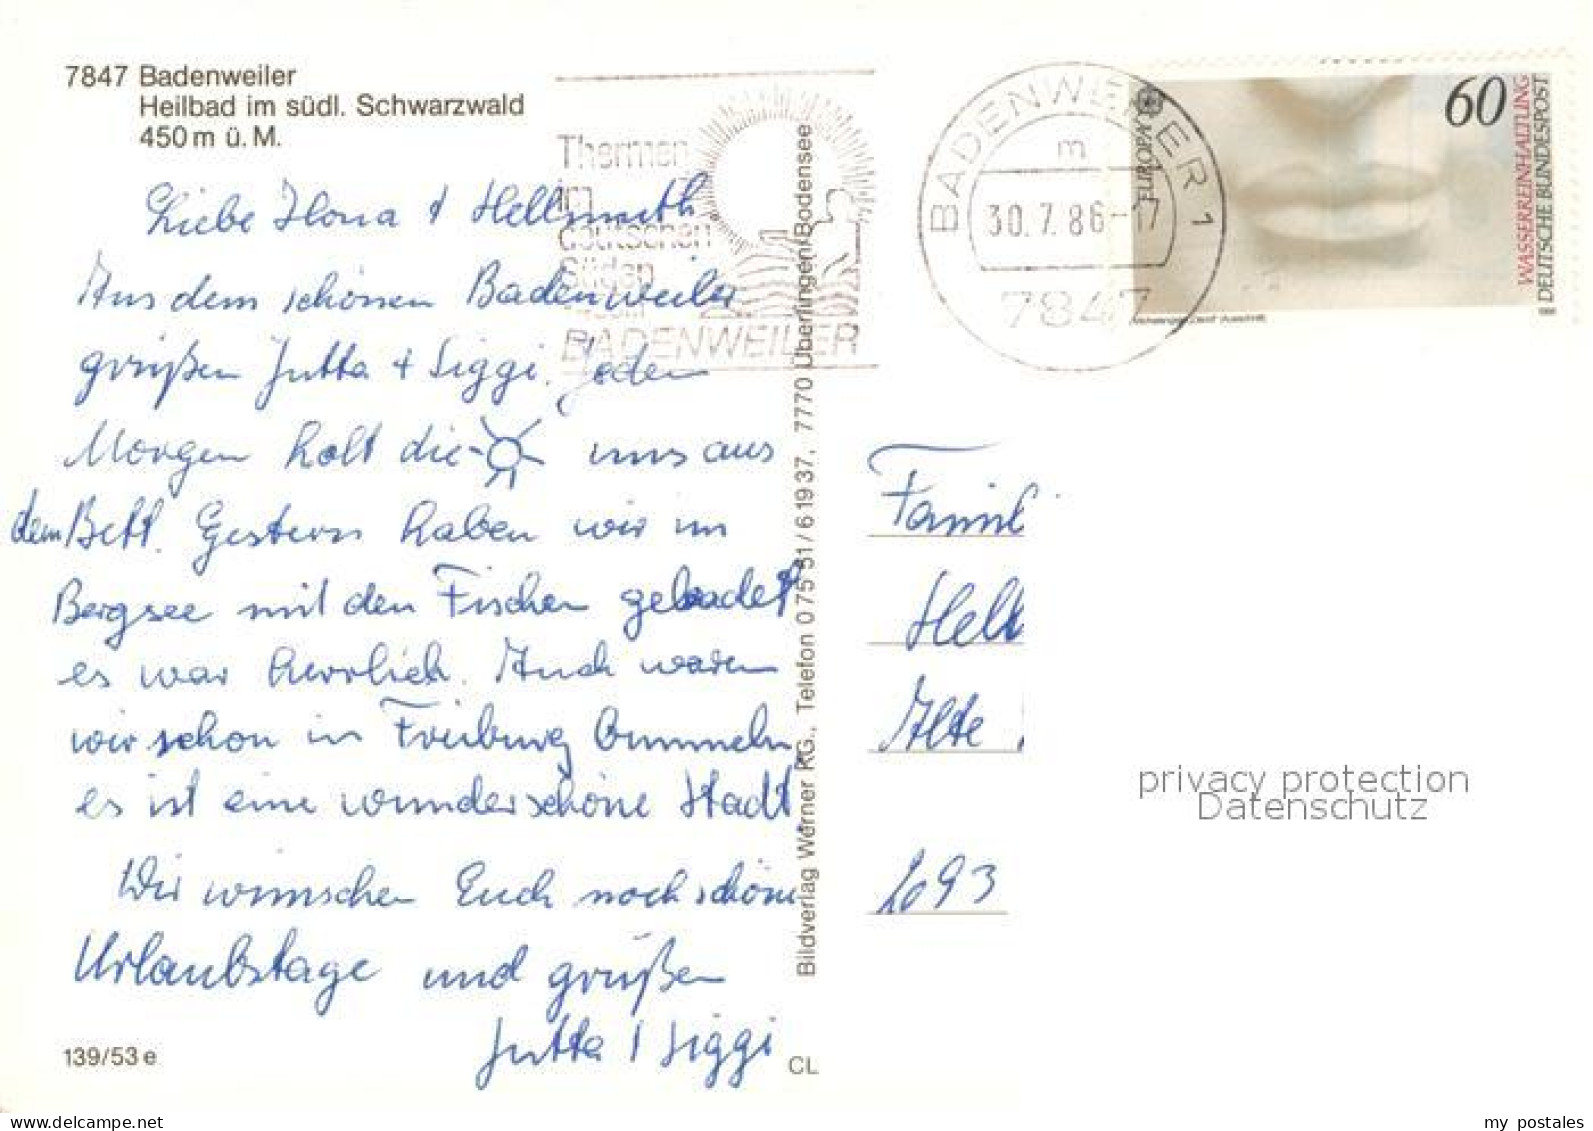 7847 Badenweiler
Heilbad im südl. Schwarzwald
450 m ü. M.
Thermen
im
deutschen
Süden
BADENWEILER
BADENWEILER 1
m
30.7.86-17
7847
EUROPA
60
WASSERREINHALTUNG
DEUTSCHE BUNDESPOST
Liebe Ilona + Hellmuth
Aus dem schönen Badenweiler
grüßen Jutta + Siggi. Jeden
Morgen holt die uns aus
dem Bett. Gestern haben wir im
Bergsee mit den Fischen gebadet
es war herrlich. Auch waren
wir schon in Freiburg bummeln,
es ist eine wunderschöne Stadt
Wir wünschen Euch noch schöne
Urlaubstage und grüßen
Jutta + Siggi
139/53 e
CL
Bildverlag Werner KG., Telefon 0 75 51 / 6 19 37, 7770 Überlingen/Bodensee
Famil
Hell
Alte
2093
privacy protection
Datenschutz
www.delcampe.net
my_postales